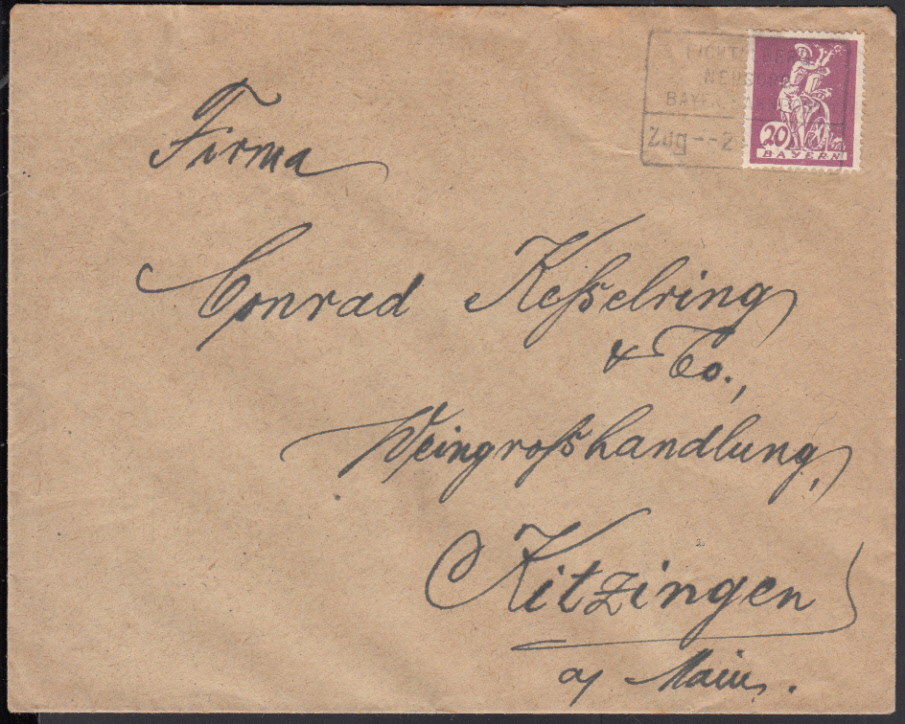 Zug -- 2
20
BAYERN
Firma
Conrad Kesselring
& Co.,
Weingrosshandlung,
Kitzingen
a/ Main.